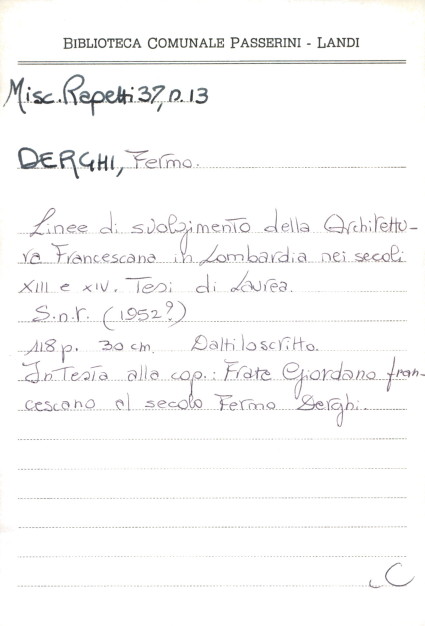 BIBLIOTECA COMUNALE PASSERINI - LANDI
Misc. Repetti 37, n. 13
DERGHI, Fermo.
Linee di svolgimento della Architettu-
ra Francescana in Lombardia nei secoli
XIII e XIV. Tesi di Laurea.
S.n.t. (1952?)
118 p. 30 cm. Dattiloscritto.
In Testa alla cop.: Frate Giordano fran-
cescano al secolo Fermo Derghi.
C